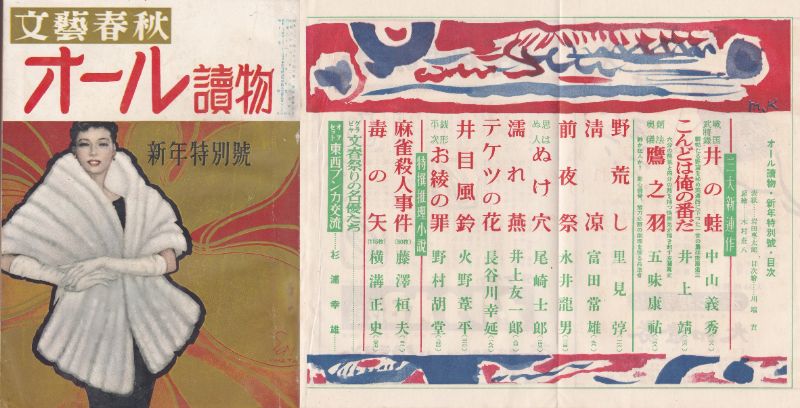 文藝春秋
オール讀物
新年特別號
オール讀物・新年特別號・目次
三大新連作
戦国武将録 井の蛙 中山義秀
こんどは俺の番だ 井上靖
剣法奥儀 鷹之羽 五味康祐
野荒し 里見弴
清涼 富田常雄
前夜祭 永井龍男
思はぬ人 ぬけ穴 尾崎士郎
濡れ燕 井上友一郎
テケツの花 長谷川幸延
井目風鈴 火野葦平
銭形平次 お綾の罪 野村胡堂
特撰推理小説
麻雀殺人事件 藤澤桓夫
毒の矢 横溝正史
グラビヤ 文春祭りの名優たち
オフセット 東西ブンカ交流 杉浦幸雄